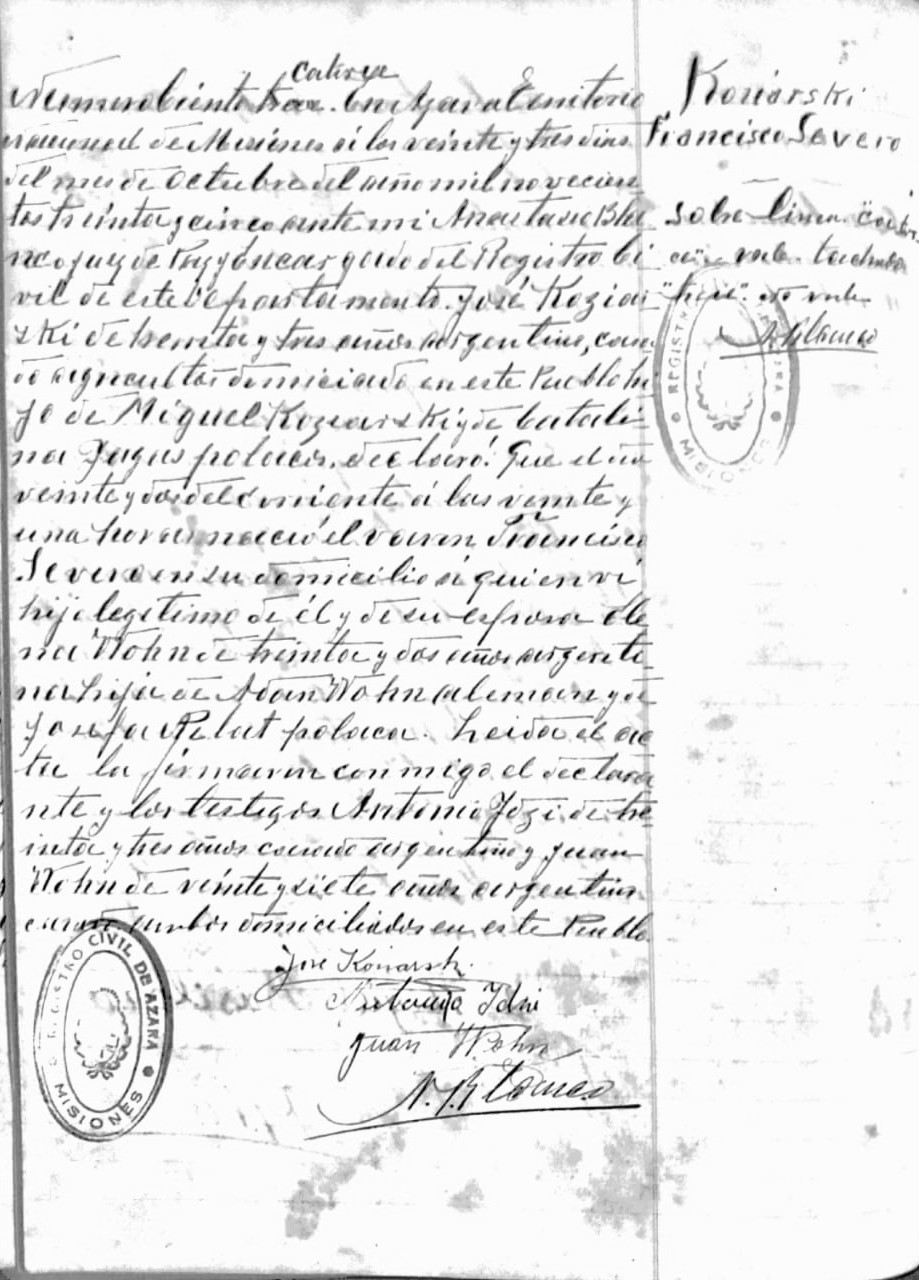 catorce
Numero ciento trece. En Azara Territorio
nacional de Misiones á los veinte y tres dias
del mes de Octubre del año mil novecien
tos treinta y cinco ante mi Anastasio Bla
nco juez de Paz y Encargado del Registro Ci
vil de este Departamento. José Koziar
zki de treinta y tres años argentino, casa
do agricultor domiciado en este Pueblo hi
jo de Miguel Koziarzki y de Catali
na Zagas polacos, declaró: Que el dia
veinte y dos del corriente á las veinte y
una horas nació el varon Francisco
Severo en su domicilio á quien ví
hijo legitimo de él y de su esposa Ele
na Wohn de treinta y dos años argenti
na hija de Adan Wohn aleman y de
Josefa Relut polaca. Leida el ac
ta la firmaron conmigo el declara
nte y los testigos Antonio Jdzi de tre
inta y tres años casado argentino y Juan
Wohn de veinte y siete años argentino
casado ambos domiciliados en este Pueblo
José Koniarski
Antonio Jdzi
Juan Wohn
A. Blanco
REGISTRO CIVIL DE AZARA
MISIONES
Koniarski
Francisco Severo
Sobre linea "cator
ce" vale. tachado
"trece" no vale
A. Blanco
REGISTRO AZARA
MISIONES